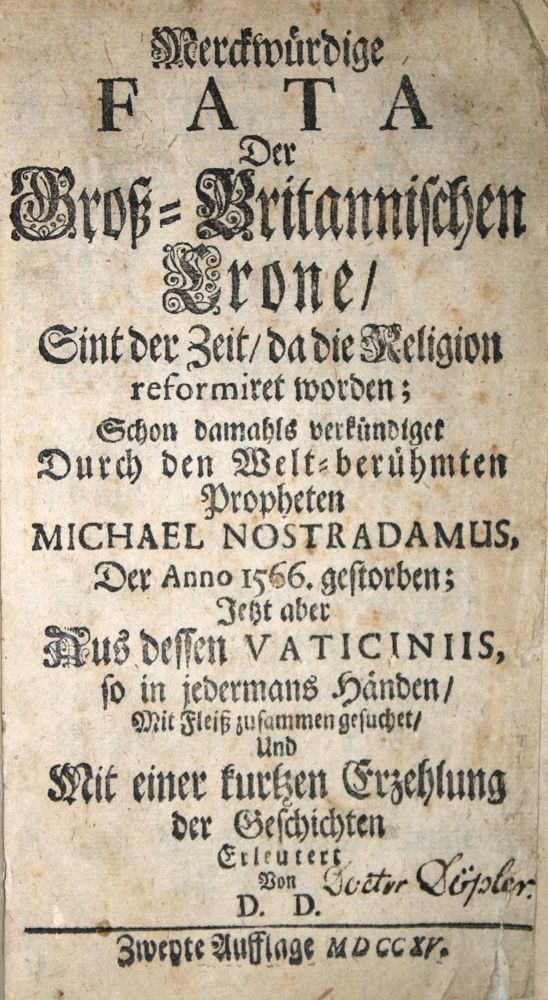 Merckwürdige
FATA
Der
Groß-Britannischen
Crone/
Sint der Zeit/ da die Religion
reformiret worden;
Schon damahls verkündiget
Durch den Welt-berühmten
Propheten
MICHAEL NOSTRADAMUS,
Der Anno 1566. gestorben;
Jetzt aber
Aus dessen VATICINIIS,
so in jedermans Händen/
Mit Fleiß zusammen gesuchet/
Und
Mit einer kurtzen Erzehlung
der Geschichten
Erleutert
Von Doctor Döpler.
D. D.
Zweyte Aufflage MDCCXV.